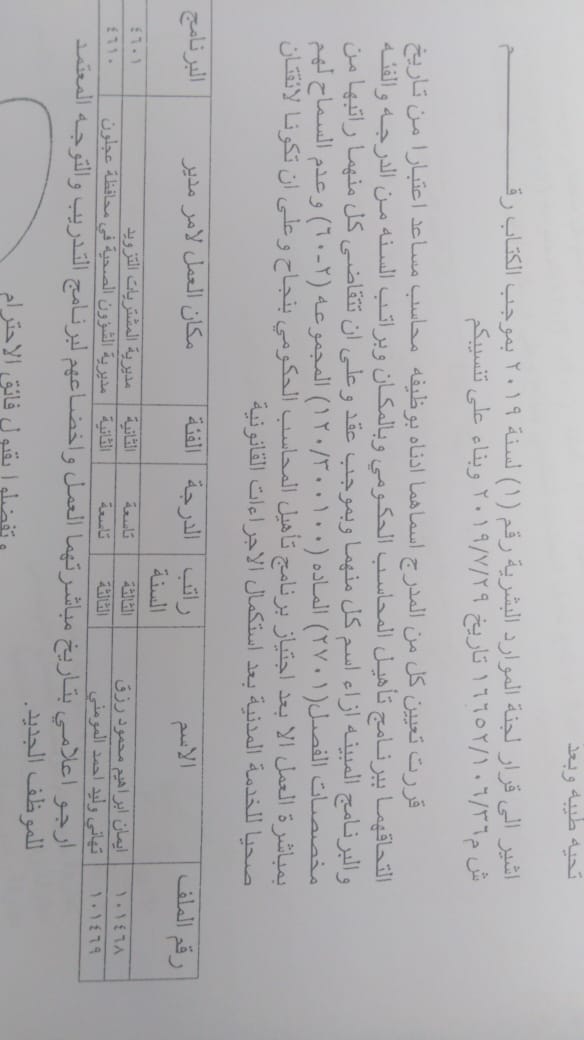 تحيه طيبه وبعد
اشير الى قرار لجنة الموارد البشرية رقم (١) لسنة ٢٠١٩ بموجب الكتاب رقـــــــــم
ش م١٦٦٥٢/١٠٦/٣٦ تاريخ ٢٠١٩/٧/٢٩ وبناء على تنسيبكم
قررت تعيين كل من المدرج اسماهما ادناه بوظيفه محاسب مساعد اعتبارا من تاريخ
التحاقهما ببرنامج تأهيل المحاسب الحكومي وبالمكان وبراتب السنه من الدرجه والفئه
والبرنامج المبينه ازاء اسم كل منهما وبموجب عقد وعلى ان تتقاضى كل منهما راتبها من
مخصصات الفصل(٢٧٠١) الماده (١٢٠/٣٠٠١٠٠) المجموعه (٢-٦٠) وعدم السماح لهم
بمباشرة العمل الا بعد اجتياز برنامج تأهيل المحاسب الحكومي بنجاح وعلى ان تكونا لائقتان
صحيا للخدمة المدنية بعد استكمال الاجراءات القانونية
رقم الملف الاسم راتب السنة الدرجة الفئة مكان العمل لامر مدير البرنامج
١٠١٤٦٨ ايمان ابراهيم محمود رزق الثالثة تاسعة الثانية مديرية المشتريات التزويد ٤٦٠١
١٠١٤٦٩ تهاني وليد احمد المومني الثالثة تاسعة الثانية مديرية الشؤون الصحية في محافظة عجلون ٤٦١٠
ارجو اعلامي بتاريخ مباشرتهما العمل واخضاعهم لبرنامج التدريب والتوجه المعتمد
للموظف الجديد.
وتفضلوا بقبول فائق الاحترام